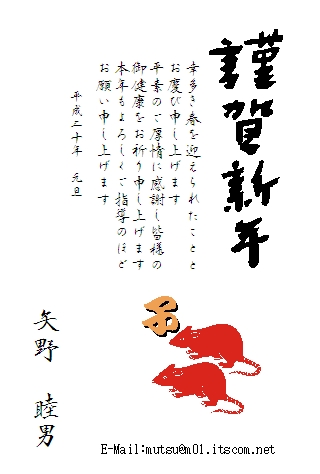 謹賀新年
幸多き春を迎えられたことと
お慶び申し上げます
平素のご厚情に感謝し皆様の
御健康をお祈り申し上げます
本年もよろしくご指導のほど
お願い申し上げます
平成二十年 元旦
子
矢野 睦男
E-Mail:mutsu@m01.itscom.net